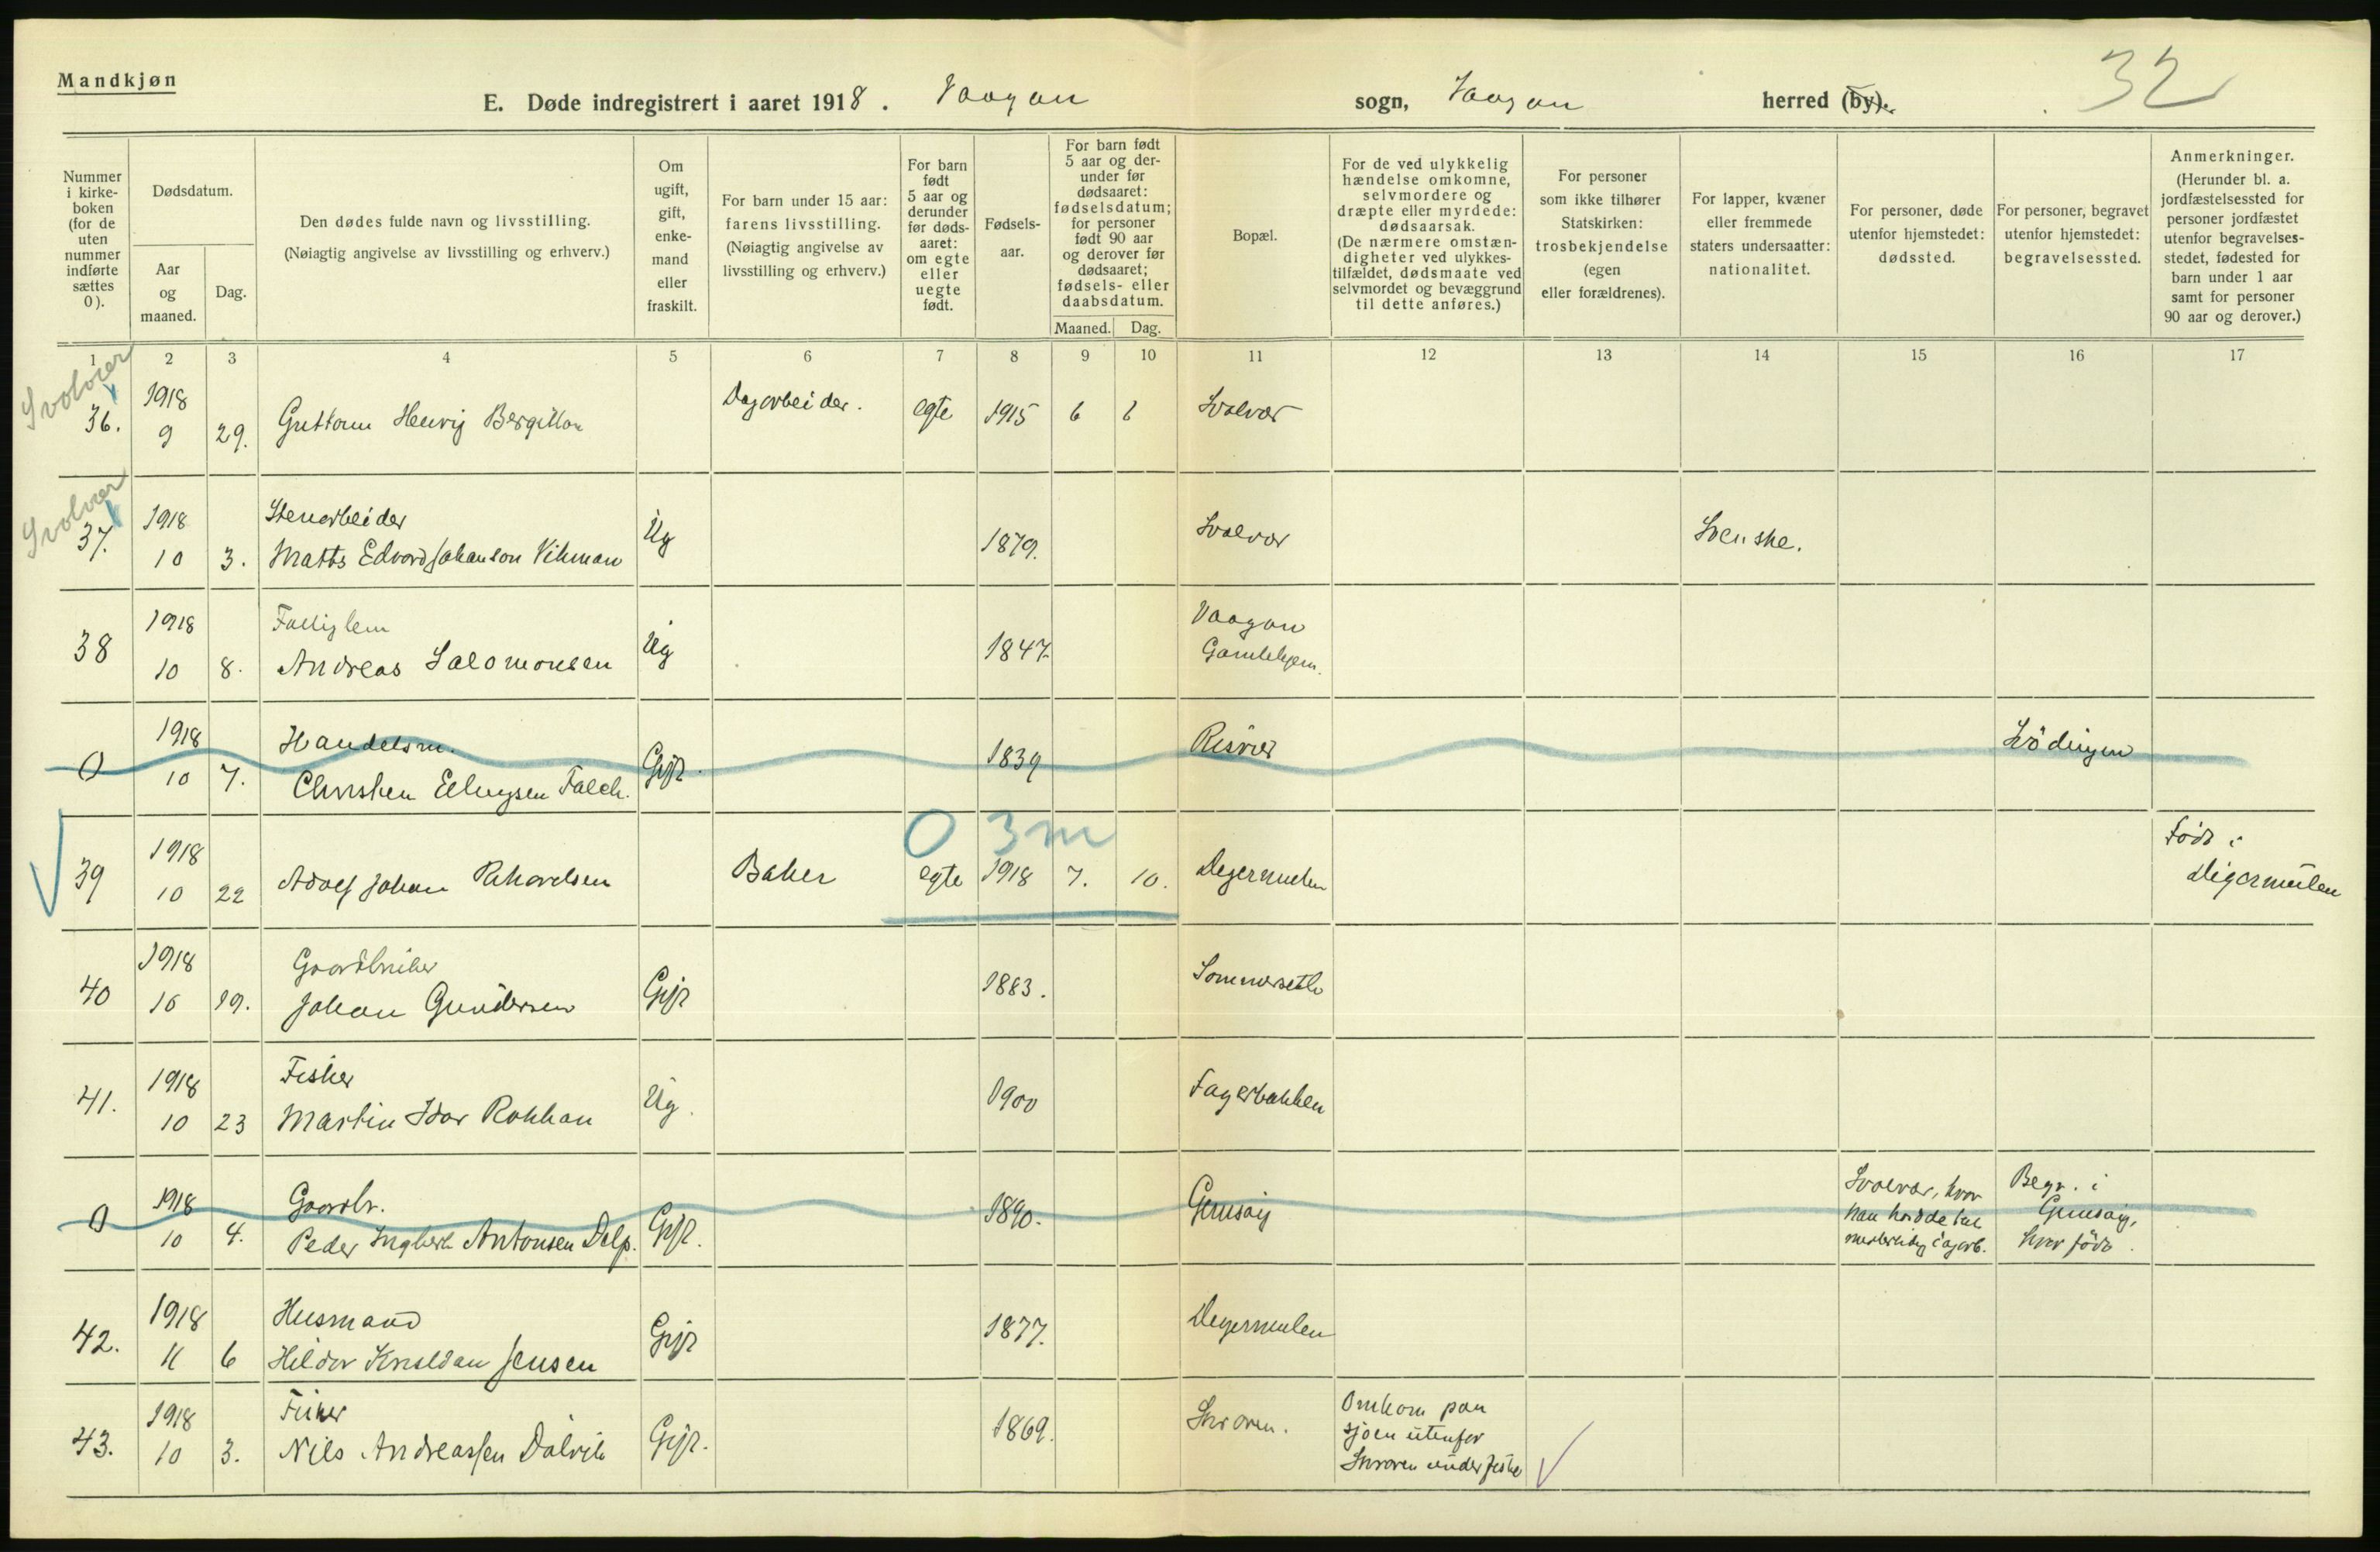 Mandkjøn
32
E. Døde indregistrert i aaret 1918. Vaagan sogn, Vaagan herred (by).
Nummer i kirkeboken (for de uten nummer indførte sættes 0).
Dødsdatum.
Aar og maaned.
Dag.
Den dødes fulde navn og livsstilling.
(Nøiagtig angivelse av livsstilling og erhverv.)
Om ugift, gift, enkemand eller fraskilt.
For barn under 15 aar: farens livsstilling.
(Nøiagtig angivelse av livsstilling og erhverv.)
For barn født 5 aar og derunder før dødsaaret: om egte eller uegte født.
Fødselsaar.
For barn født 5 aar og derunder før dødsaaret: fødselsdatum; for personer født 90 aar og derover før dødsaaret; fødsels- eller daabsdatum.
Maaned.
Dag.
Bopæl.
For de ved ulykkelig hændelse omkomne, selvmordere og dræpte eller myrdede: dødsaarsak.
(De nærmere omstændigheter ved ulykkestilfældet, dødsmaate ved selvmordet og bevæggrund til dette anføres.)
For personer som ikke tilhører Statskirken: trosbekjendelse (egen eller forældrenes).
For lapper, kvæner eller fremmede staters undersaatter: nationalitet.
For personer, døde utenfor hjemstedet: dødssted.
For personer, begravet utenfor hjemstedet: begravelsessted.
Anmerkninger.
(Herunder bl. a. jordfæstelsessted for personer jordfæstet utenfor begravelsesstedet, fødested for barn under 1 aar samt for personer 90 aar og derover.)
1 2 3 4 5 6 7 8 9 10 11 12 13 14 15 16 17
Svolvær
36. 1918 9 29. Guttorm Henrij Dagarbeider. egte 1915 6 Svolvær
Svolvær
37. 1918 10 3. Stenarbeider
Matts Edvard Johanson Vikman Ug 1879. Svolvær Svenske.
38 1918 10 8. Fattiglem
Andreas Salomonsen Ug 1847. Vaagan
Gamlehjem.
0 1918 10 7. Handelsm.
Christen Ellingsen Falch. Gift. 1839 Risvær Lödingen
0 3 m
39 1918 10 22 Adolf Johan Rikardsen Baker egte 1918 7. 10. Degermulen Född i
Digermulen
40 1918 10 19. Gaardbruker
Johan Gundersen Gift 1883. Sommersetb
41. 1918 10 23 Fisker
Martin Idar Rokkan Ug. 1900 Fagerbakken
0 1918 10 4. Gaardbr.
Peder Ingbert Antonsen Dolp. Gift. 1890. Gimsøy Svolvær, hvor
han hadde
Begr. i
Gimsøy,
hvor född.
42. 1918 11 6 Husmand
Hildor Kristian Jensen Gift 1877. Degermulen
43. 1918 10 3. Fisker
Nils Andreassen Dalvik Gift. 1869. Skroven. Omkom paa
sjøen utenfor
Skroven under fiske